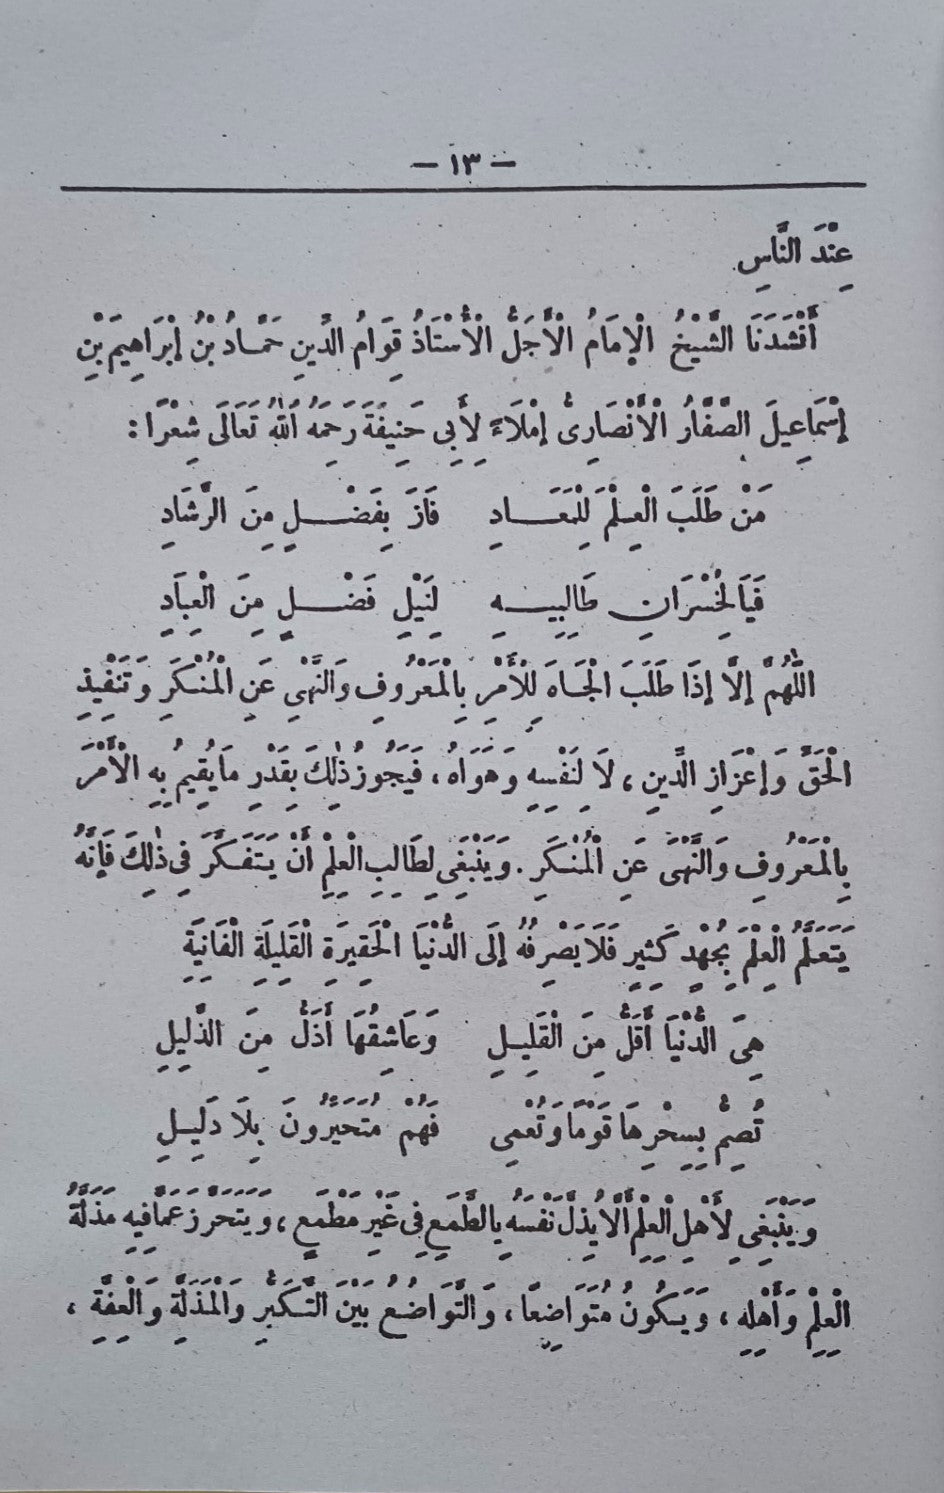 - ١٣ -
عِنْدَ النَّاسِ.
أَنْشَدَنَا الشَّيْخُ الْإِمَامُ الْأَجَلُّ الْأُسْتَاذُ قِوَامُ الدِّينِ حَمَّادُ بْنُ إِبْرَاهِيمَ بْنِ
إِسْمَاعِيلَ الصَّفَّارُ الْأَنْصَارِىُّ إِمْلَاءً لِأَبِى حَنِيفَةَ رَحِمَهُ اللّٰهُ تَعَالَى شِعْرًا :
مَنْ طَلَبَ الْعِلْمَ لِلْمَعَادِ فَازَ بِفَضْلٍ مِنَ الرَّشَادِ
فَيَا لَخُسْرَانِ طَالِبِيهِ لِنَيْلِ فَضْلٍ مِنَ الْعِبَادِ
اللّٰهُمَّ إِلَّا إِذَا طَلَبَ الْجَاهَ لِلْأَمْرِ بِالْمَعْرُوفِ وَالنَّهْىِ عَنِ الْمُنْكَرِ وَتَنْفِيذِ
الْحَقِّ وَإِعْزَازِ الدِّينِ ، لَا لِنَفْسِهِ وَهَوَاهُ ، فَيَجُوزُ ذٰلِكَ بِقَدْرِ مَا يُقِيمُ بِهِ الْأَمْرَ
بِالْمَعْرُوفِ وَالنَّهْىَ عَنِ الْمُنْكَرِ . وَيَنْبَغِى لِطَالِبِ الْعِلْمِ أَنْ يَتَفَكَّرَ فِى ذٰلِكَ فَإِنَّهُ
يَتَعَلَّمُ الْعِلْمَ بِجُهْدٍ كَثِيرٍ فَلَا يَصْرِفُهُ إِلَى الدُّنْيَا الْحَقِيرَةِ الْقَلِيلَةِ الْفَانِيَةِ
هِىَ الدُّنْيَا أَقَلُّ مِنَ الْقَلِيلِ وَعَاشِقُهَا أَذَلُّ مِنَ الذَّلِيلِ
تُصِمُّ بِسِحْرِهَا قَوْمًا وَتُعْمِى فَهُمْ مُتَحَيِّرُونَ بِلَا دَلِيلِ
وَيَنْبَغِى لِأَهْلِ الْعِلْمِ أَلَّا يُذِلَّ نَفْسَهُ بِالطَّمَعِ فِى غَيْرِ مَطْمَعٍ ، وَيَتَحَرَّزَ عَمَّا فِيهِ مَذَلَّةُ
الْعِلْمِ وَأَهْلِهِ ، وَيَكُونُ مُتَوَاضِعًا ، وَالتَّوَاضُعُ بَيْنَ التَّكَبُّرِ وَالْمَذَلَّةِ وَالْعِفَّةِ ،